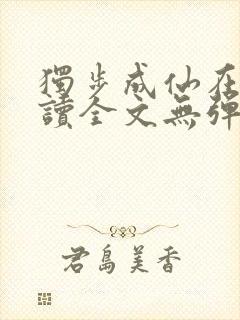 獨步成仙在
讀全文無彈
君島美香